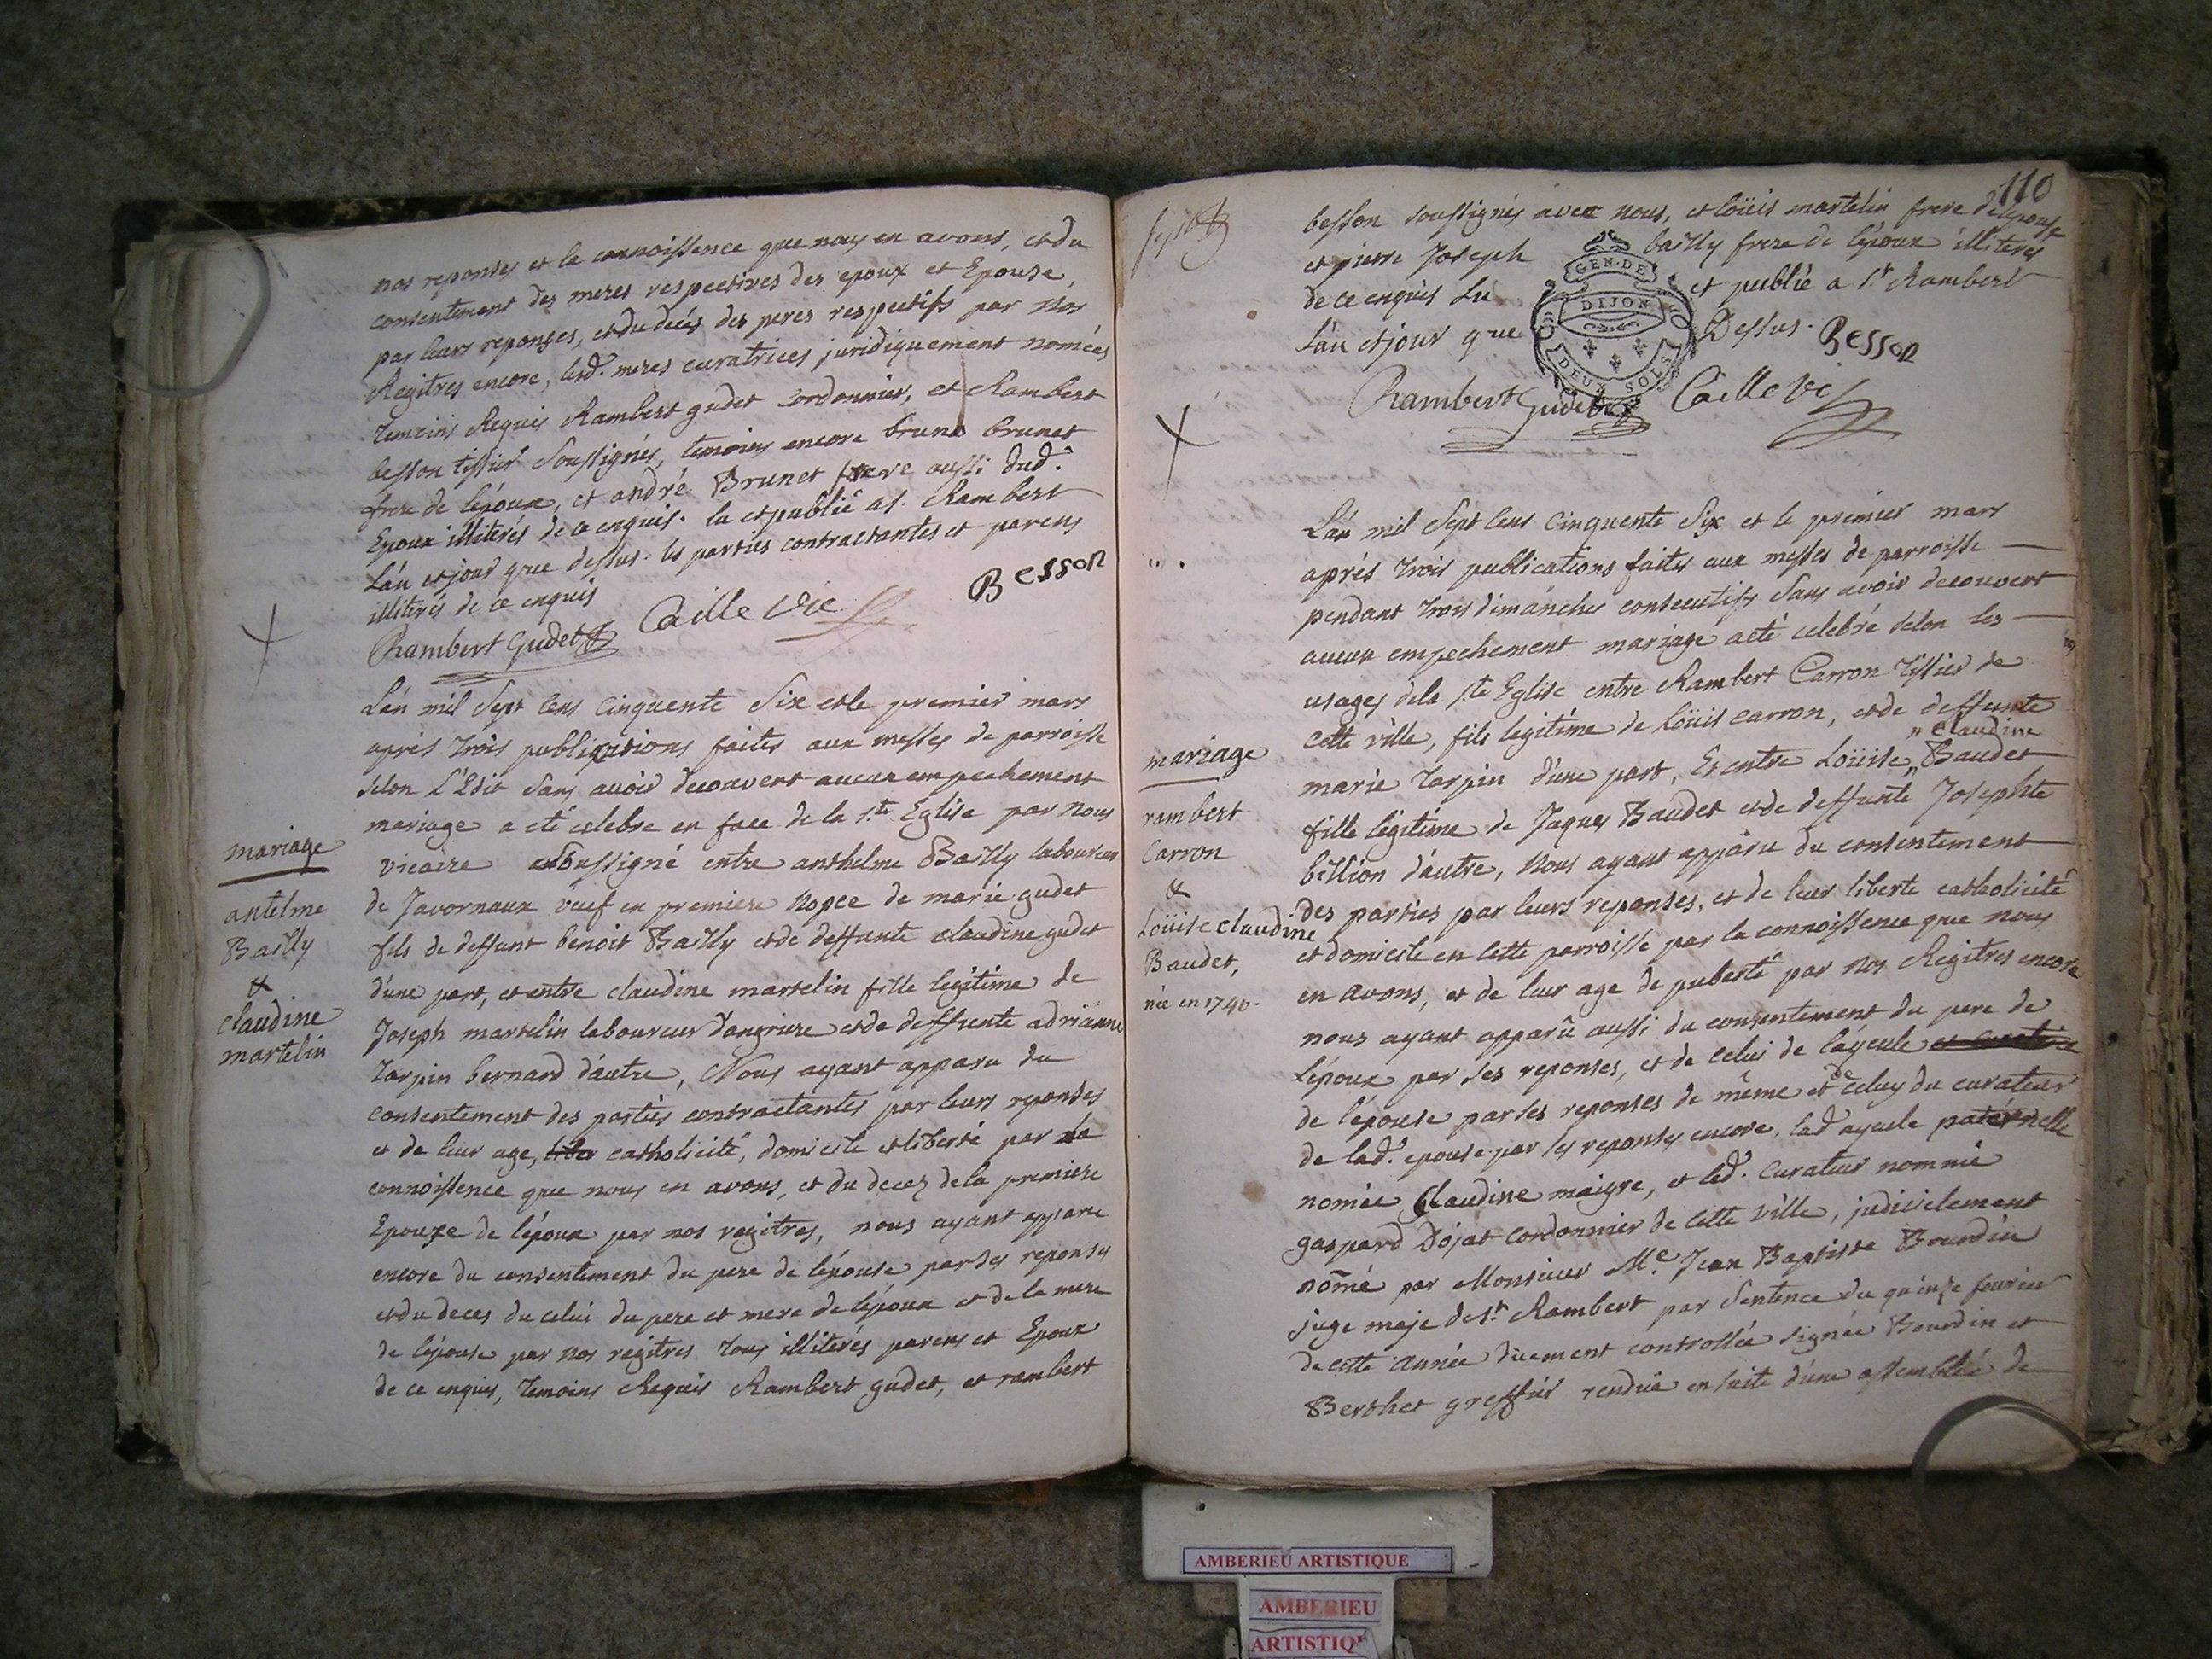 nos reponses et la connoissence que nous en avons, et du
consentement des meres respectives des epoux et Epouse,
par leurs reponses, et du decés des peres respectifs par nos
Regitres encore, lesd. meres curatrices juridiquement nomées
temoins Requis Rambert gudet cordonnier, et Rambert
besson tissier soussignés, temoins encore bruno brunet
frere de l'époux, et andré Brunet frere aussi dud.
Epoux illiterés de ce enquis. lu et publié a s. Rambert
L'an et jour que dessus. les parties contractantes et parens
illiterés de ce enquis
Besson
Rambert Gudet Caille vic
L'an mil sept cens cinquente six et le premier mars
aprés trois publications faites aux messes de parroisse
selon L'Edit sans avoir decouvert aucun empechement
mariage a eté celebré en face de la s.te Eglise par nous
vicaire soussigné entre anthelme Bailly laboureur
de Javornaux veuf en premiere nopce de marie gudet
fils de deffunt benoit Bailly et de deffunte claudine gudet
d'une part, et entre claudine martelin fille legitime de
Joseph martelin laboureur d'angriere et de deffunte adrianne
tarpin bernard d'autre, Nous ayant apparu du
consentement des parties contractantes par leurs reponses
et de leur age, catholicité, domicile et liberté par la
connoissence que nous en avons, et du decez de la premiere
Epouze de l'époux par nos regitres, nous ayant apparu
encore du consentement du pere de l'épouse par ses reponses
et du deces du celui du pere et mere de l'époux et de la mere
de l'épouse par nos regitres tous illiterés parens et Epoux
de ce enquis, temoins Requis Rambert gudet, et rambert
mariage
antelme
Bailly
&
claudine
martelin
110
besson soussignés avec nous, et loüis martelin frere de l'epouse
et pierre Joseph bailly frere de l'époux illiterés
de ce enquis Lu et publié a s.t Rambert
L'an et jour que Dessus. Besson
GEN. DE
DIJON
DEUX SOLS
Rambert Gudet Caille vic
L'an mil sept cens cinquente six et le premier mars
aprés trois publications faites aux messes de parroisse
pendant trois dimanches consecutifs sans avoir decouvert
aucun empechement mariage a eté celebré selon les
usages de la s.te Eglise entre Rambert Carron tissier de
cette ville, fils legitime de Loüis carron, et de deffunte
" claudine
marie tarpin d'une part, Et entre Loüise " Baudet
fille légitime de Jaques Baudet et de deffunte Josephte
billion d'autre, nous ayant apparu du consentement
des parties par leurs reponses, et de leur liberté catholicité
et domicile en cette parroisse par la connoissence que nous
en avons, et de leur age de puberté par nos Regitres encore
nous ayant apparû aussi du consentement du pere de
l'époux par ses reponses, et de celui de l'ayeule
de l'épouse par ses reponses de même et de celuy du curateur
de lad. epouse par ses reponses encore, lad ayeule paternelle
nomée Claudine maigre, et led. curateur nommé
gaspard Dojat cordonnier de cette ville, judicielement
nomé par Monsieur M.e Jean Baptiste Bourdin
juge maje de s.t Rambert par sentence du quinze fevrier
de cette année düement controllée signée Bourdin et
Berthet greffier rendüe en suite d'une assemblée de
mariage
rambert
Carron
&
Loüise claudine
Baudet,
née en 1740.
AMBERIEU ARTISTIQUE
AMBERIEU
ARTISTIQ